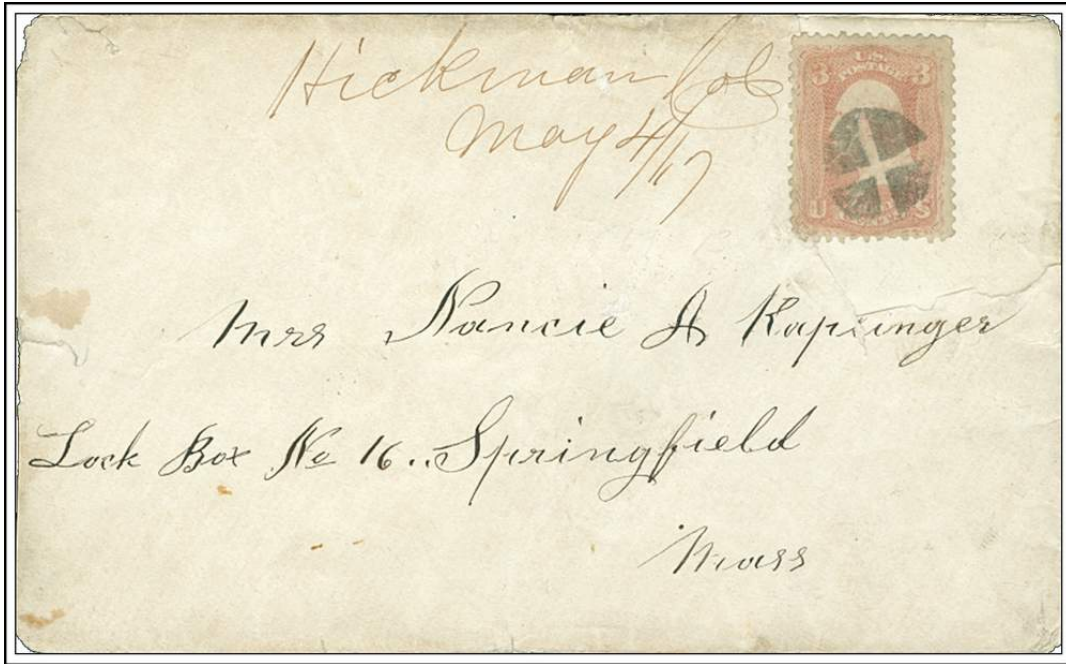 Hickman Col
May 4/17
3 U.S. POSTAGE 3
U S
Mrs Nancie A
Lock Box No 16.. Springfield
Mass